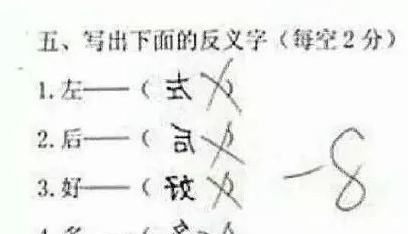 五、写出下面的反义字（每空2分）
1.左——（左）
2.后——（后）
3.好——（好）
4.多——（多
-8